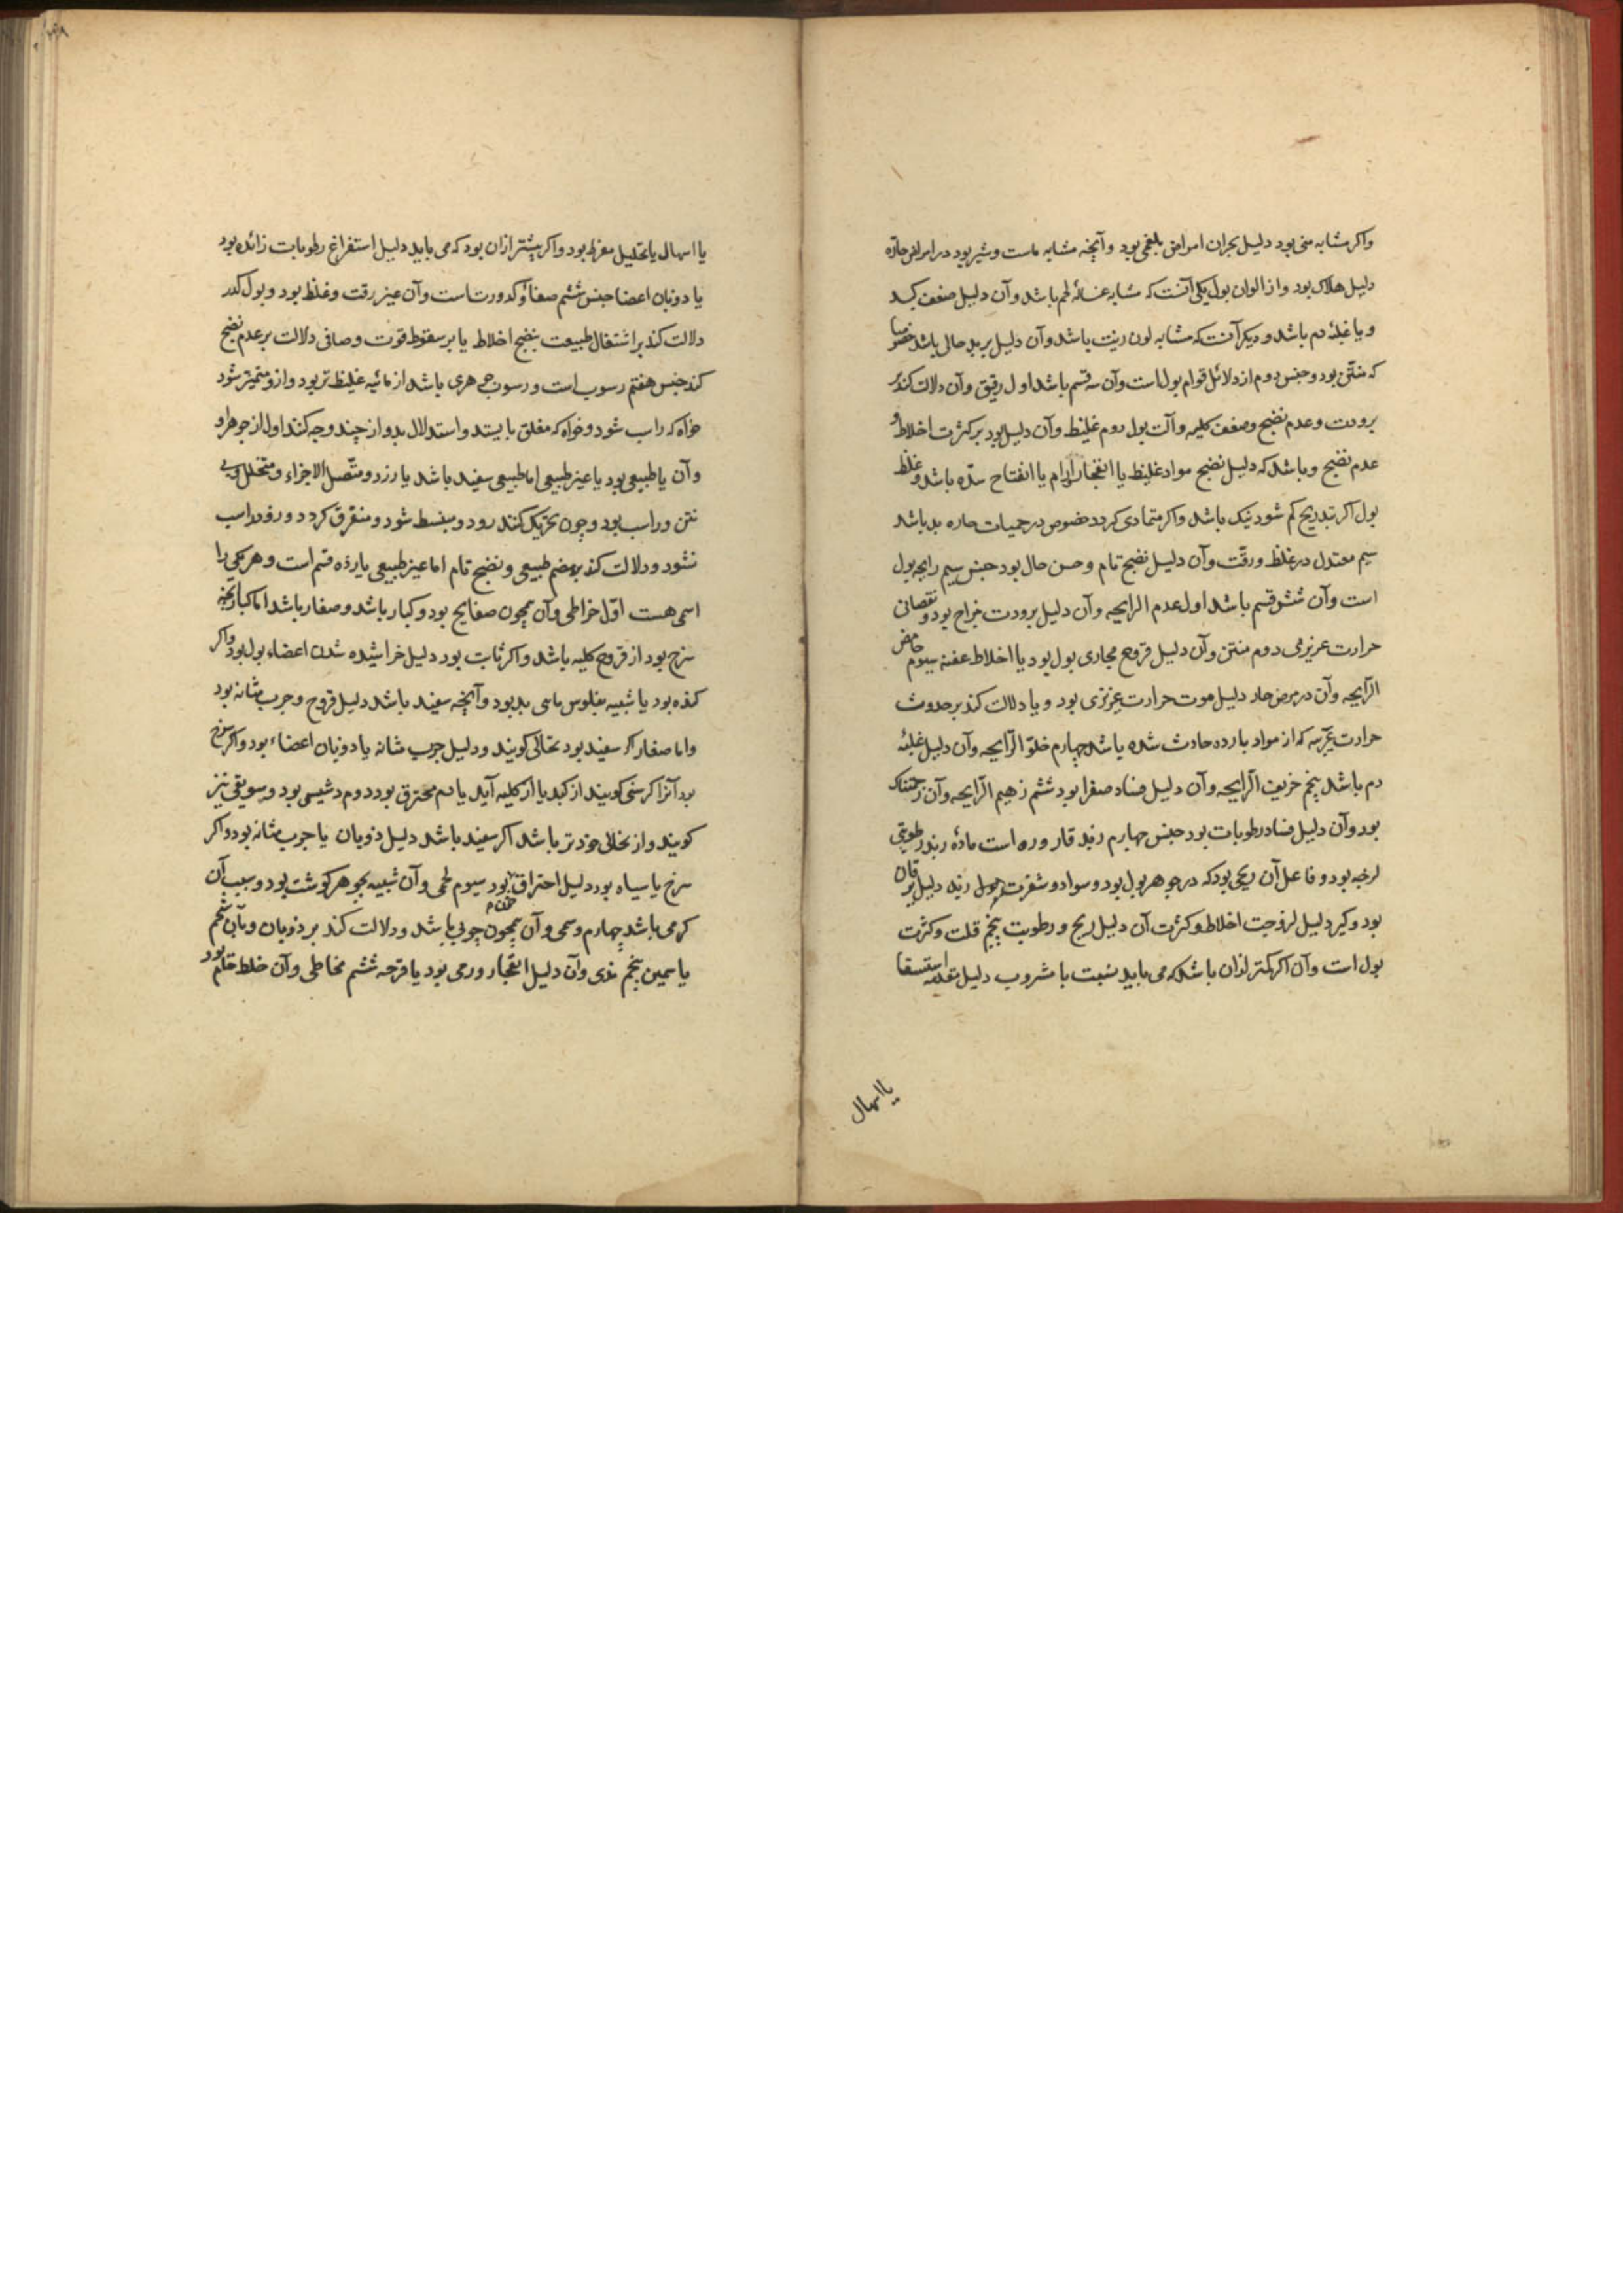 واکر مشابه منی بود دلیل بحران امراض بلغمی بود و آنچه مشابه ماست و شیر بود در امراض حادّه
دلیل هلاک بود و از الوان بول یکی آنست که مشابه غسالهٔ لحم باشد و آن دلیل ضعف کبد
و یا غلبهٔ دم باشد و دیکر آنست که مشابه لون زیت باشد و آن دلیل بر بد حالی باشد خصوصا
که منتّن بود و جنس دوم از دلائل قوام بول است و آن سه قسم باشد اول رقیق و آن دلالت کند بر
برودت و عدم نضج و ضعف کلیه و آلت بول دوم غلیظ و آن دلیل بود بر کثرت اخلاط و
عدم نضج و باشد که دلیل نضج مواد غلیظ یا انفجار اورام یا انفتاح سدّه باشد و غلظ
بول اکر بتدریج کم شود نیک باشد و اکر متمادی کردد خصوص در حمیات حاره بد باشد
سیم معتدل در غلظ و رقّت و آن دلیل نضج تام و حسن حال بود جنس سیم رایحه بول
است و آن شش قسم باشد اول عدم الرایحه و آن دلیل برودت مزاج بود و نقصانی
حرارت غریزی دوم منتن و آن دلیل قروح مجاری بول بود یا اخلاط عفنه سیوم حامض
الرایحه و آن در مرض حاد دلیل موت حرارت غریزی بود و یا دلالت کند بر حدوث
حرارت غریبه که از مواد بارده حادث شده باشد چهارم حلو الرّایحه و آن دلیل غلبهٔ
دم باشد پنجم حریف الرایحه و آن دلیل فساد صفرا بود ششم زهیم الرایحه و آن زحمتناک
بود و آن دلیل فساد رطوبات بود جنس چهارم زبد قاروره است مادهٔ زبد رطوبتی
لزجه بود و فاعل آن ریحی بود که در جوهر بول بود و سواد و شقرت بول زبد دلیل یرقان
بود و کبر دلیل لزوجت اخلاط و کثرت آن دلیل ریح و رطوبت پنجم قلت و کثرت
بول است و آن اکر کمتر از ان باشد که می باید نسبت با مشروب دلیل مقدمه استسقا
یا اسهال
یا اسهال یا تحلیل مفرط بود و اکر بیشتر ازان بود که می باید دلیل استفراغ رطوبات زائده بود
یا ذوبان اعضا جنس ششم صفا و کدورت است و آن غیر رقت و غلظ بود و بول کدر
دلالت کند بر اشتغال طبیعت بنضج اخلاط یا بر سقوط قوت و صافی دلالت بر عدم نضج
کند جنس هفتم رسوب است و رسوب جوهری باشد از مائیه غلیظ تر بود و از و متمیز شود
خواه که راسب شود و خواه که معلق بایستد و استدلال بدو از چند وجه کنند اول از جوهر او
و آن یا طبیعی بود یا غیر طبیعی اما طبیعی سفید باشد یا زرد و متّصل الاجزاء و متخلل و بی
نتن و راسب بود و چون تحریک کنند رود و منبسط شود و متفرق کردد و زود راسب
نشود و دلالت کند بر هضم طبیعی و نضج تام اما غیر طبیعی یازده قسم است و هر یکی را
اسمی هست اوّل خراطی و آن همچون صفایح بود و کبار باشد و صغار باشد اما کبار آنچه
سرخ بود از قروح کلیه باشد و اکر ثابت بود دلیل خراشیده شدن اعضاء بول بود و اکر
کمده بود یا شبیه بفلوس ماهی بد بود و آنچه سفید باشد دلیل قروح و جرب مثانه بود
و اما صغار اکر سفید بود نخالی کویند و دلیل جرب مثانه یا ذوبان اعضاء بود و اکر سرخ
بود آنرا کرسنی کویند از کبد یا از کلیه آید یا دم محترق بود دوم دشیشی بود و سویقی نیز
کویند و از نخالی خردتر باشد اکر سفید باشد دلیل ذوبان یا جرب مثانه بود و اکر
سرخ یا سیاه بود دلیل احتراق خون بود سیوم لحمی و آن شبیه بجوهر کوشت بود و سبب آن
کرمی باشد چهارم دسمی و آن همچون چربی باشد و دلالت کند بر ذوبان و بآن شحم
یا سمین پنجم مدّی و آن دلیل انفجار ورمی بود یا قرحه ششم مخاطی و آن خلط خام بود